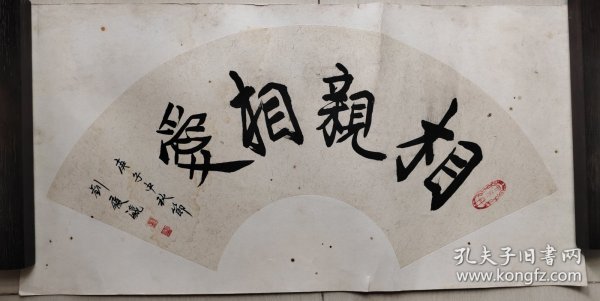 相親相愛
庚子中秋節
劉
孔夫子旧书网
www.kongfz.com